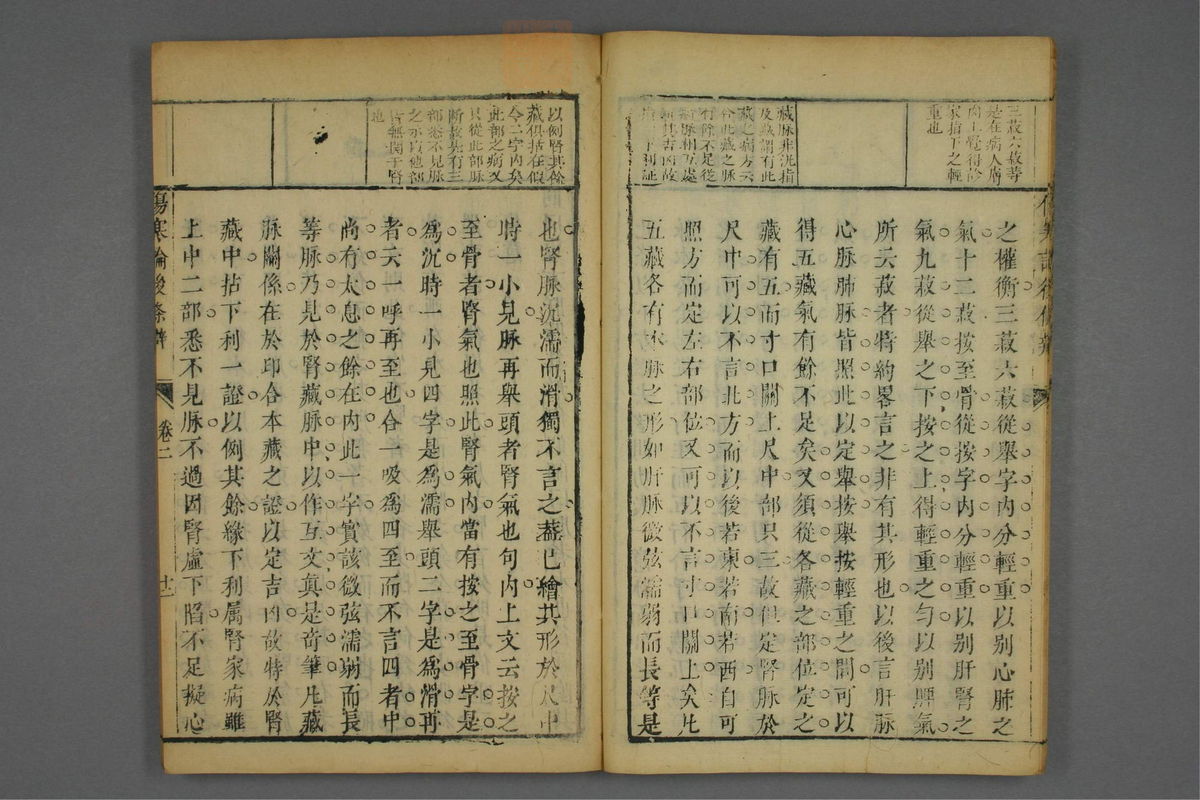 三菽六菽等
是在病人膚
肉上覺得診
家指下之輕
重也
藏脉非洗指
及藏謂有此
藏之病方云
合此藏之脉
有餘不足從
之權衡三菽六菽從舉字內分輕重以別心肺之
氣十二菽按至骨從按字內分輕重以別肝腎之
氣九菽從舉之下按之上得輕重之勻以別脾氣
所云菽者特約畧言之非有其形也以後言肝脉
心脉肺脉皆照此以定舉按舉按輕重之間可以
得五藏氣有餘不足矣又須從各藏之部位定之
藏有五而寸口關上尺中部只三故但定腎脉於
尺中可以不言北方而以後若東若南若西自可
照方而定左右部位又可以不言寸口關上矣凡
五藏各有本脉之形如肝脉微弦濡弱而長等是
以例腎其餘
藏俱括在假
令二字內矣
此部之病又
只從此部脉
斷故先有三
部悉不見脉
之示以他部
皆無關于腎
也
也腎脉沉濡而滑獨不言之蓋已繪其形於尺中
時一小見脉再舉頭者腎氣也句內上文云按之
至骨者腎氣也照此腎氣內當有按之至骨字是
爲沉時一小見四字是爲濡舉頭二字是爲滑再
者云一呼再至也合一吸爲四至而不言四者中
尚有太息之餘在內此一字實該微弦濡弱而長
等脉乃見於腎藏脉中以作互文眞是奇筆凡藏
脉關係在於印合本藏之證以定吉凶故特於腎
藏中拈下利一證以例其餘緣下利属腎家病雖
上中二部悉不見脉不過因腎虛下陷不足擬心
傷寒論後條辨
卷二
十二